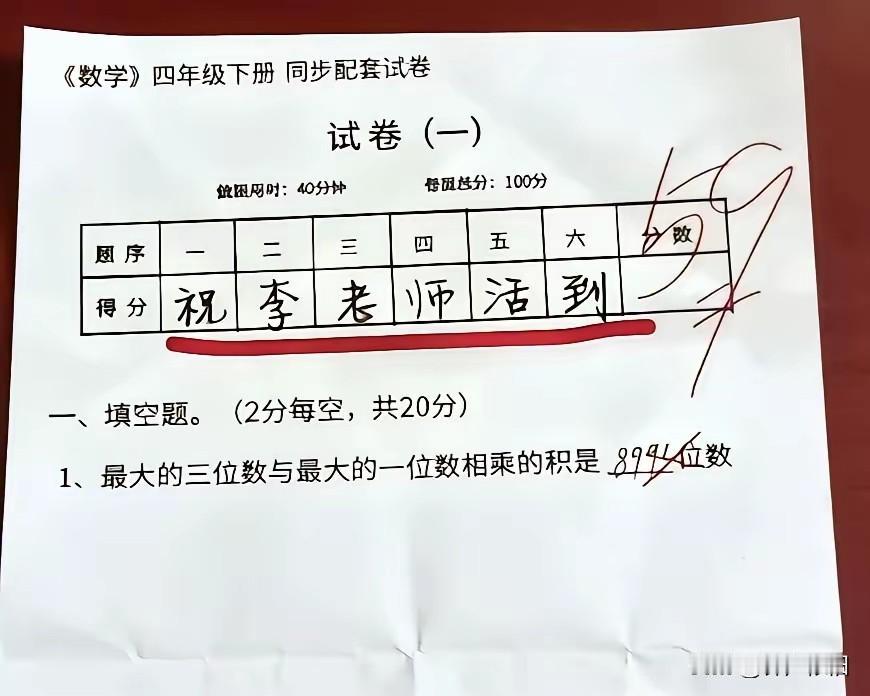 《数学》四年级下册 同步配套试卷
试卷（一）
时：40分钟 分：100分
题序 一 二 三 四 五 六 分数
得分 祝 李 老 师 活 到
59
一、填空题。（2分每空，共20分）
1、最大的三位数与最大的一位数相乘的积是 8991位数